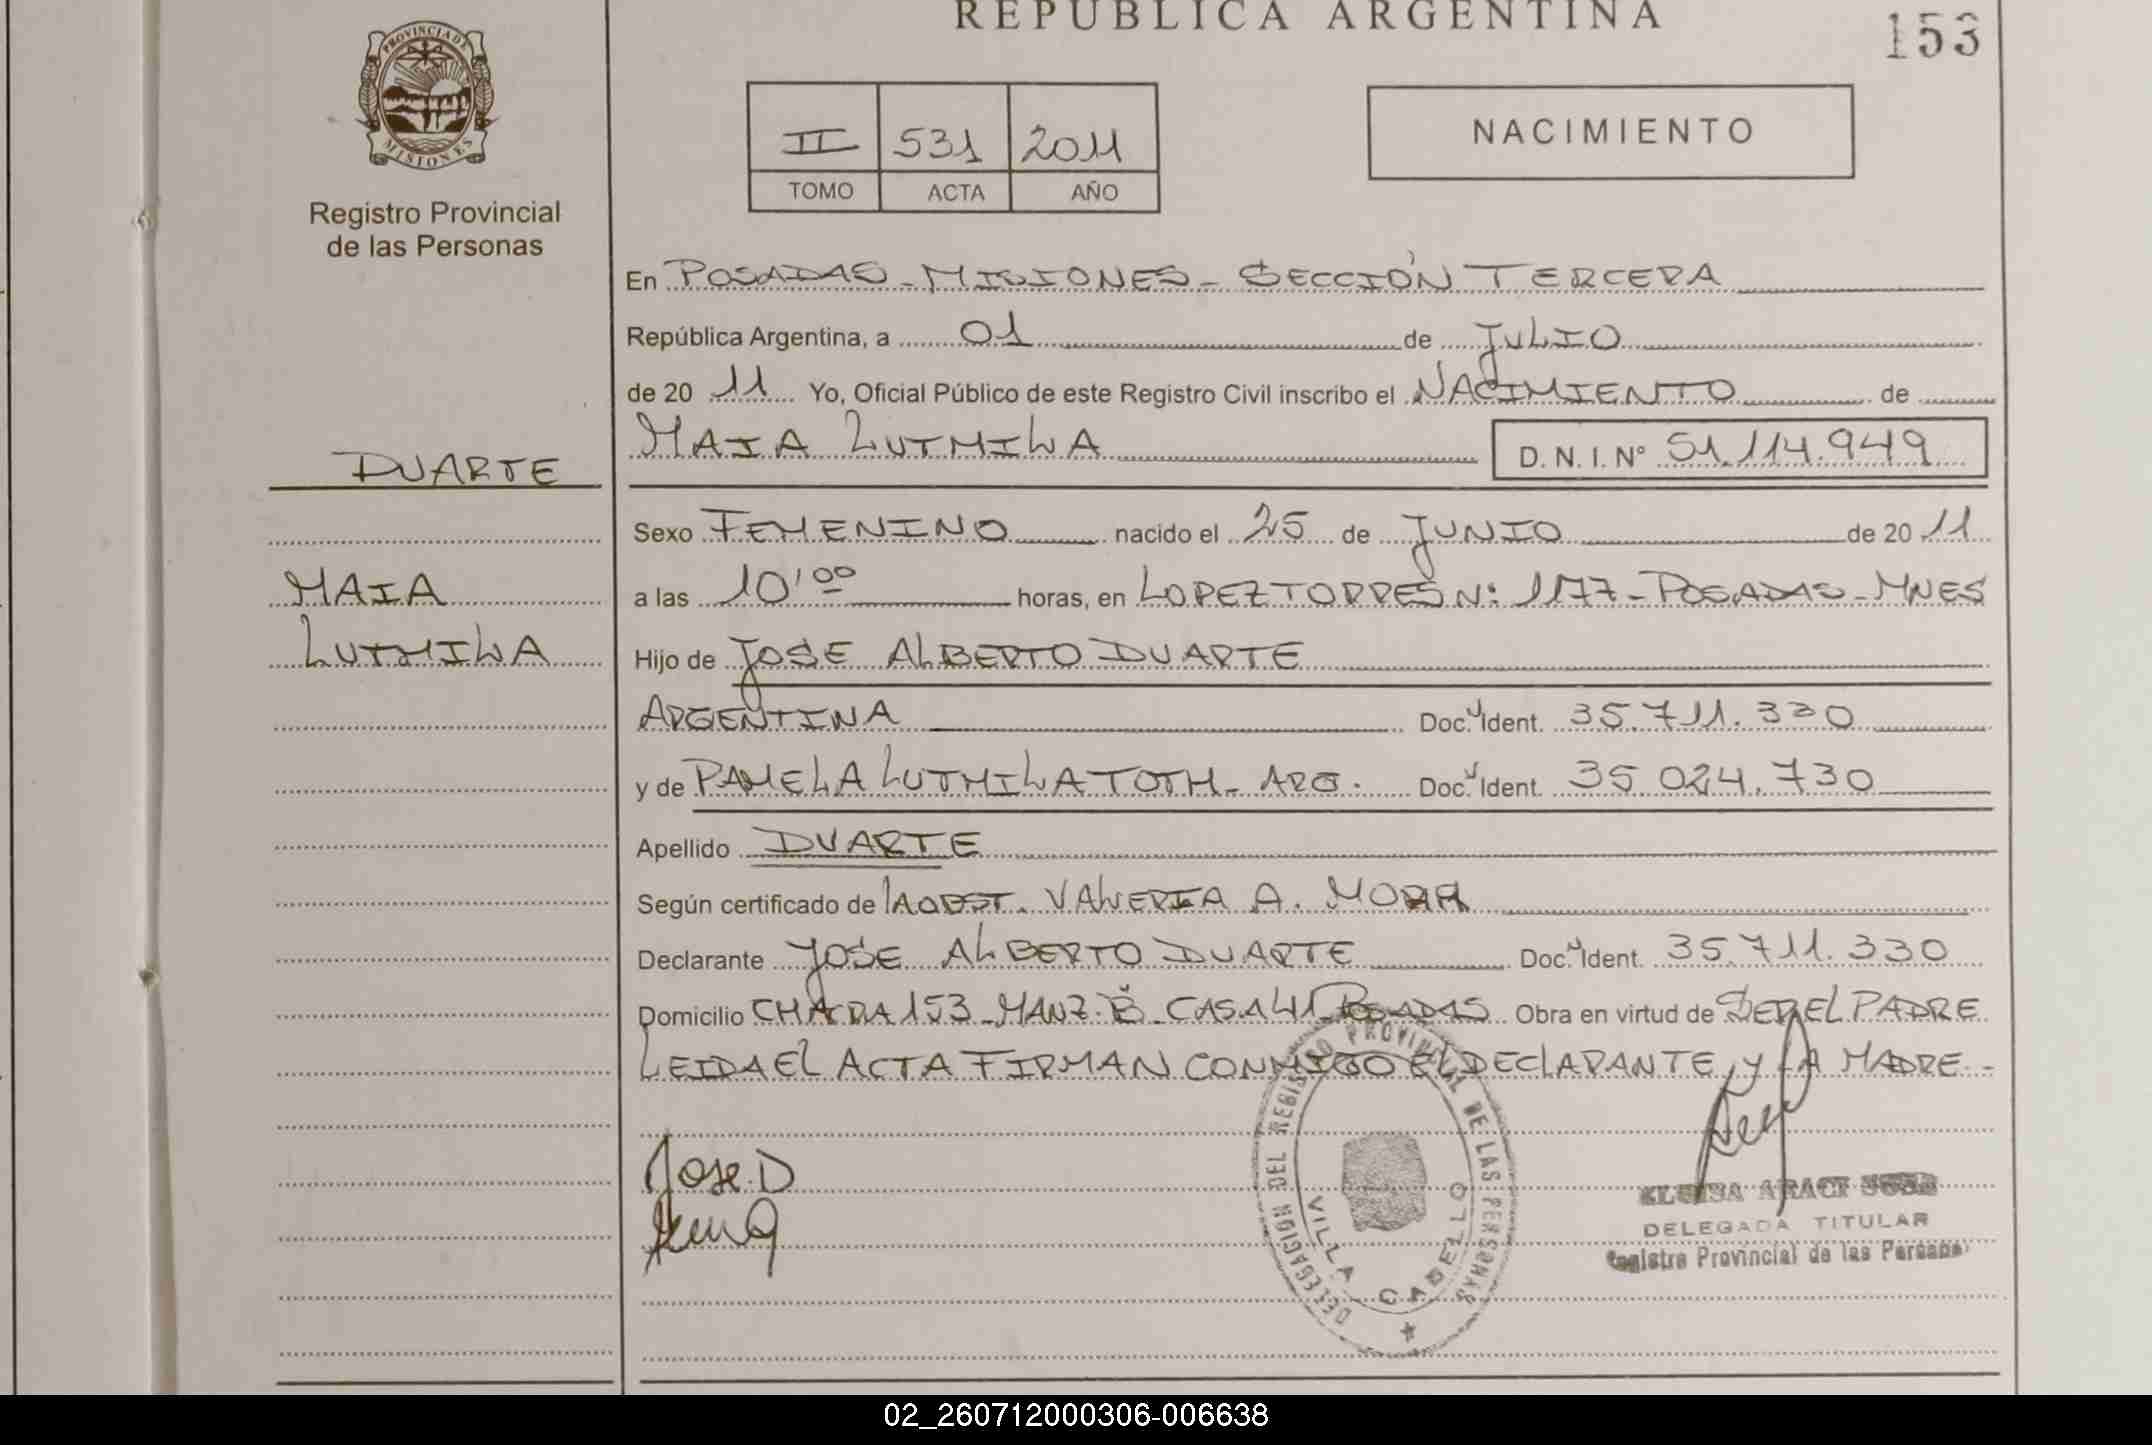 REPUBLICA ARGENTINA
153
PROVINCIA DE MISIONES
Registro Provincial
de las Personas
II 531 2011
TOMO ACTA AÑO
NACIMIENTO
En POSADAS - MISIONES - SECCIÓN TERCERA
República Argentina, a 01 de JULIO
de 20 11 Yo, Oficial Público de este Registro Civil inscribo el NACIMIENTO de
MAIA LUTMILA D. N. I. N° 51.114.949
DUARTE
Sexo FEMENINO nacido el 25 de JUNIO de 20 11
MAIA
a las 10'00 horas, en LOPEZ TORRES N: 1177 - POSADAS - MNES
LUTMILA
Hijo de JOSE ALBERTO DUARTE
ARGENTINA Doc. Ident. 35.711.330
y de PAMELA LUTMILA TOTH - ARG. Doc. Ident. 35.024.730
Apellido DUARTE
Según certificado de VALERIA A. MORA
Declarante JOSE ALBERTO DUARTE Doc. Ident. 35.711.330
Domicilio CHACRA 153 - MANZ. B - CASA 41 POSADAS Obra en virtud de SER EL PADRE
LEIDA EL ACTA FIRMAN CONMIGO EL DECLARANTE Y LA MADRE -
Jose D
DELEGACION DEL REGISTRO PROVINCIAL DE LAS PERSONAS
VILLA CABELLO
DELEGADA TITULAR
Registro Provincial de las Personas
02_260712000306-006638